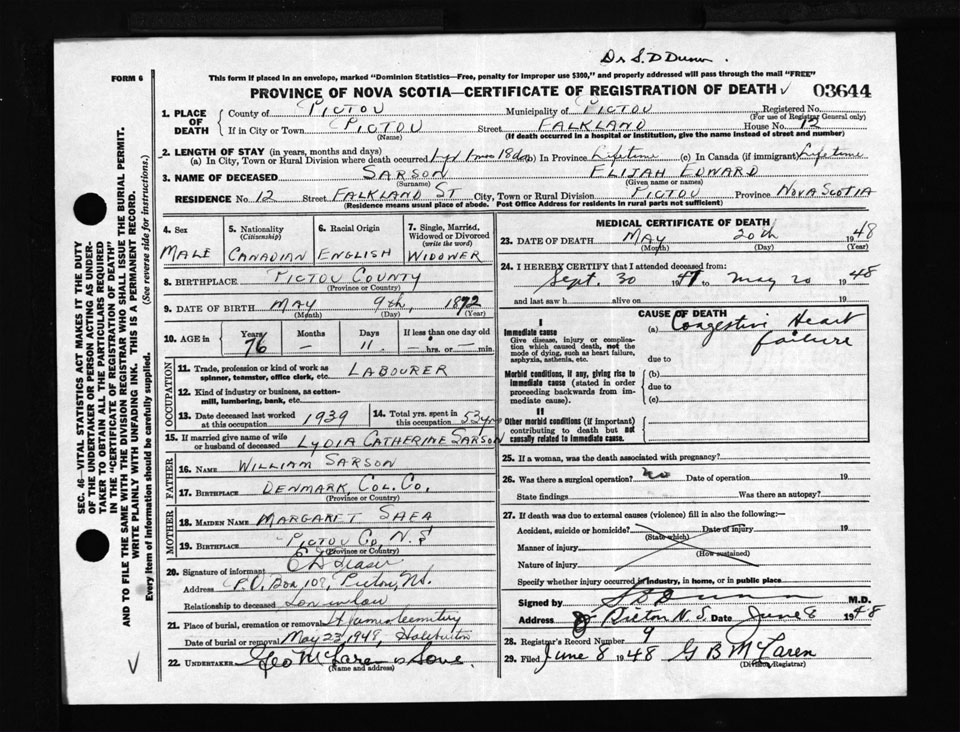 Dr S. D Dunn.
FORM 6
This form if placed in an envelope, marked "Dominion Statistics—Free, penalty for improper use $300," and properly addressed will pass through the mail "FREE"
PROVINCE OF NOVA SCOTIA—CERTIFICATE OF REGISTRATION OF DEATH √ 03644
1. PLACE OF DEATH
County of PICTOU Municipality of PICTOU Registered No.
(For use of Registrar General only)
If in City or Town PICTOU Street FALKLAND House No. 12
(Name) (If death occurred in a hospital or institution, give the name instead of street and number)
2. LENGTH OF STAY (in years, months and days)
(a) In City, Town or Rural Division where death occurred 1 yr 1 mos 18 days (b) In Province Lifetime (c) In Canada (if immigrant) Lifetime
3. NAME OF DECEASED SARSON ELIJAH EDWARD
(Surname) (Given name or names)
RESIDENCE No. 12 Street FALKLAND ST City, Town or Rural Division PICTOU Province NOVA SCOTIA
(Residence means usual place of abode. Post Office Address for residents in rural parts not sufficient)
4. Sex MALE
5. Nationality (Citizenship) CANADIAN
6. Racial Origin ENGLISH
7. Single, Married, Widowed or Divorced (write the word) WIDOWER
8. BIRTHPLACE PICTOU COUNTY
(Province or County)
9. DATE OF BIRTH MAY 9th, 1872
(Month) (Day) (Year)
10. AGE in Years Months Days If less than one day old
76 — 11. — hrs. or — min.
OCCUPATION
11. Trade, profession or kind of work as spinner, teamster, office clerk, etc. LABOURER
12. Kind of industry or business, as cotton-mill, lumbering, bank, etc.
13. Date deceased last worked at this occupation 1939
14. Total yrs. spent in this occupation 53 yrs
15. If married give name of wife or husband of deceased LYDIA CATHERINE SARSON
FATHER
16. NAME WILLIAM SARSON
17. BIRTHPLACE DENMARK, COL. CO.
(Province or County)
MOTHER
18. MAIDEN NAME MARGARET SHEA
19. BIRTHPLACE PICTOU CO, N. S
(Province or County)
20. Signature of informant
Address P.O. Box 102, Pictou, N.S.
Relationship to deceased Son in law
21. Place of burial, cremation or removal St James Cemitery
Date of burial or removal May 23, 1948, Haliburton
22. UNDERTAKER Geo McLaren & Sons.
(Name and address)
MEDICAL CERTIFICATE OF DEATH
23. DATE OF DEATH MAY 20th 1948
(Month) (Day) (Year)
24. I HEREBY CERTIFY that I attended deceased from:
Sept. 30 1947 to May 20 1948
and last saw h alive on 19
CAUSE OF DEATH
I
Immediate cause (a) Congestive Heart failure
Give disease, injury or complication which caused death, not the mode of dying, such as heart failure, asphyxia, asthenia, etc.
due to
Morbid conditions, if any, giving rise to immediate cause (stated in order proceeding backwards from immediate cause).
(b)
due to
(c)
II
Other morbid conditions (if important) contributing to death but not causally related to immediate cause.
25. If a woman, was the death associated with pregnancy?
26. Was there a surgical operation? no Date of operation 19
State findings Was there an autopsy?
27. If death was due to external causes (violence) fill in also the following:—
Accident, suicide or homicide? Date of injury 19
(State which)
Manner of injury
(How sustained)
Nature of injury
Specify whether injury occurred in industry, in home, or in public place
Signed by S D Dunn M.D.
Address Pictou N.S Date June 8 1948
28. Registrar's Record Number 9
29. Filed June 8 1948 G B McLaren
(Division Registrar)
SEC. 46—VITAL STATISTICS ACT MAKES IT THE DUTY
OF THE UNDERTAKER OR PERSON ACTING AS UNDER-
TAKER TO OBTAIN ALL THE PARTICULARS REQUIRED
IN THE "CERTIFICATE OF REGISTRATION OF DEATH"
AND TO FILE THE SAME WITH THE DIVISION REGISTRAR WHO SHALL ISSUE THE BURIAL PERMIT.
WRITE PLAINLY WITH UNFADING INK. THIS IS A PERMANENT RECORD.
Every item of information should be carefully supplied. (See reverse side for instructions.)